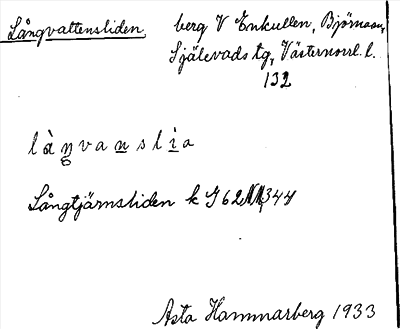 Långvattensliden. berg V Enkullen, Björnaån,
Själevads tg, Västernorrl. l.
132
làŋvanslia
Långtjärnsliden k J62 344
Asta Hammarberg 1933